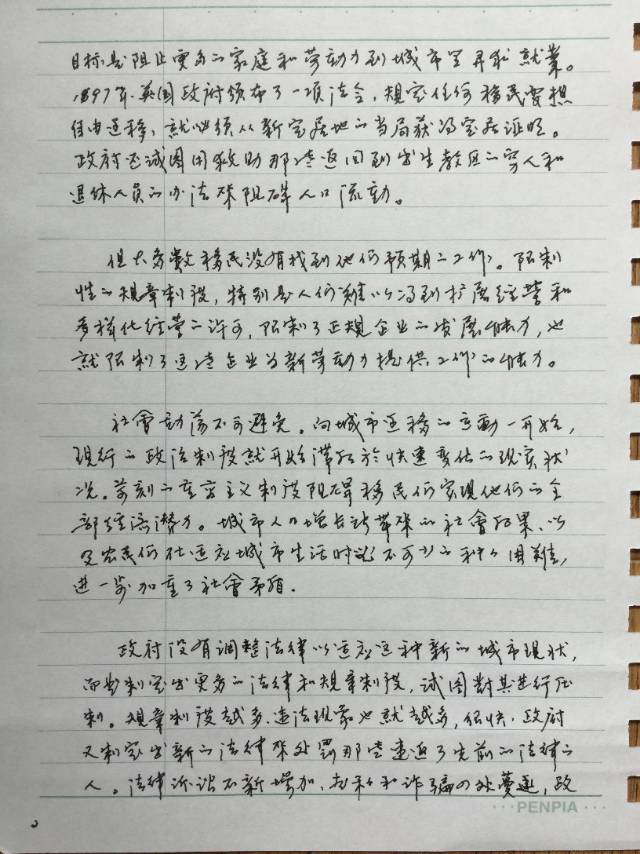 目标是阻止更多的家庭和劳动力到城市里寻求就业。
1697年英国政府颁布了一项法令,规定任何移民要想
自由迁移,就必须从新定居地的当局获得定居证明。
政府还试图用救助那些返回到出生教区的穷人和
退休人员的办法来阻碍人口流动。
但大多数移民没有找到他们预期的工作。限制
性的规章制度,特别是人们难以得到扩展经营和
多样化经营的许可,限制了正规企业的发展能力,也
就限制了这些企业为新劳动力提供工作的能力。
社會动荡不可避免。向城市迁移的运動一开始,
现行的政治制度就开始滞后於快速变化的现实状
况。苛刻的重商主义制度阻碍移民们实現他们的全
部经济潜力。城市人口增长所带来的社會后果,以
及农民们在适应城市生活时必不可少的种种困難,
进一步加重了社會矛盾.
政府没有调整法律以适应这种新的城市现状,
而是制定出更多的法律和規章制度,试图對其进行压
制。規章制度越多,违法现象也就越多,很快,政府
又制定出新的法律来处罰那些违返了先前的法律的
人。法律诉讼不断增加,走私和诈骗四处蔓延,政
PENPIA